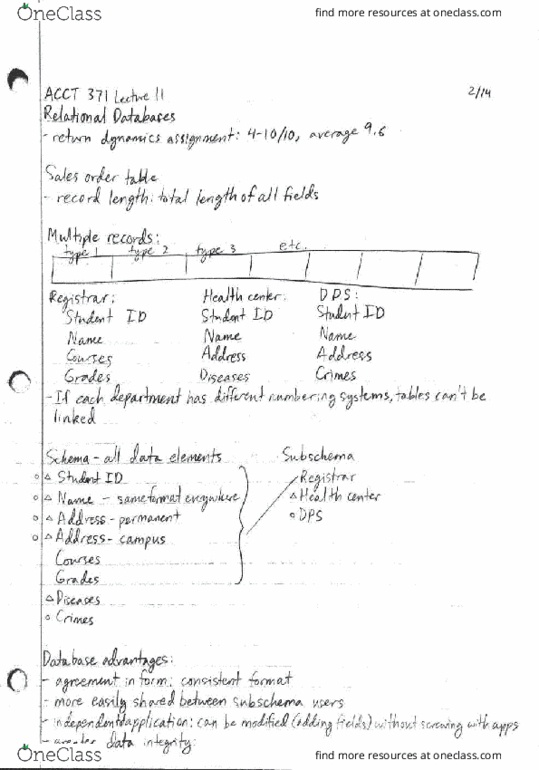 OneClass
find more resources at oneclass.com
ACCT 371 Lecture 11
2/14
Relational Databases
- return dynamics assignment: 4-10/10, average 9.6
Sales order table
- record length: total length of all fields
Multiple records:
type 1 type 2 type 3 etc.
Registrar: Health center: DPS:
Student ID Student ID Student ID
Name Name Name
Courses Address Address
Grades Diseases Crimes
- If each department has different numbering systems, tables can't be
linked
Schema - all data elements Subschema
○ △ Student ID Registrar
○ △ Name - same format everywhere △ Health center
○ △ Address - permanent ○ DPS
○ △ Address - campus
Courses
Grades
△ Diseases
○ Crimes
Database advantages:
- agreement in form: consistent format
- more easily shared between subschema users
- independent application: can be modified (adding fields) without screwing with apps
- greater data integrity:
OneClass
find more resources at oneclass.com